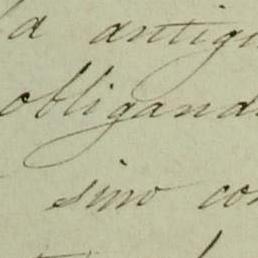 la antigu
obligand
sino con